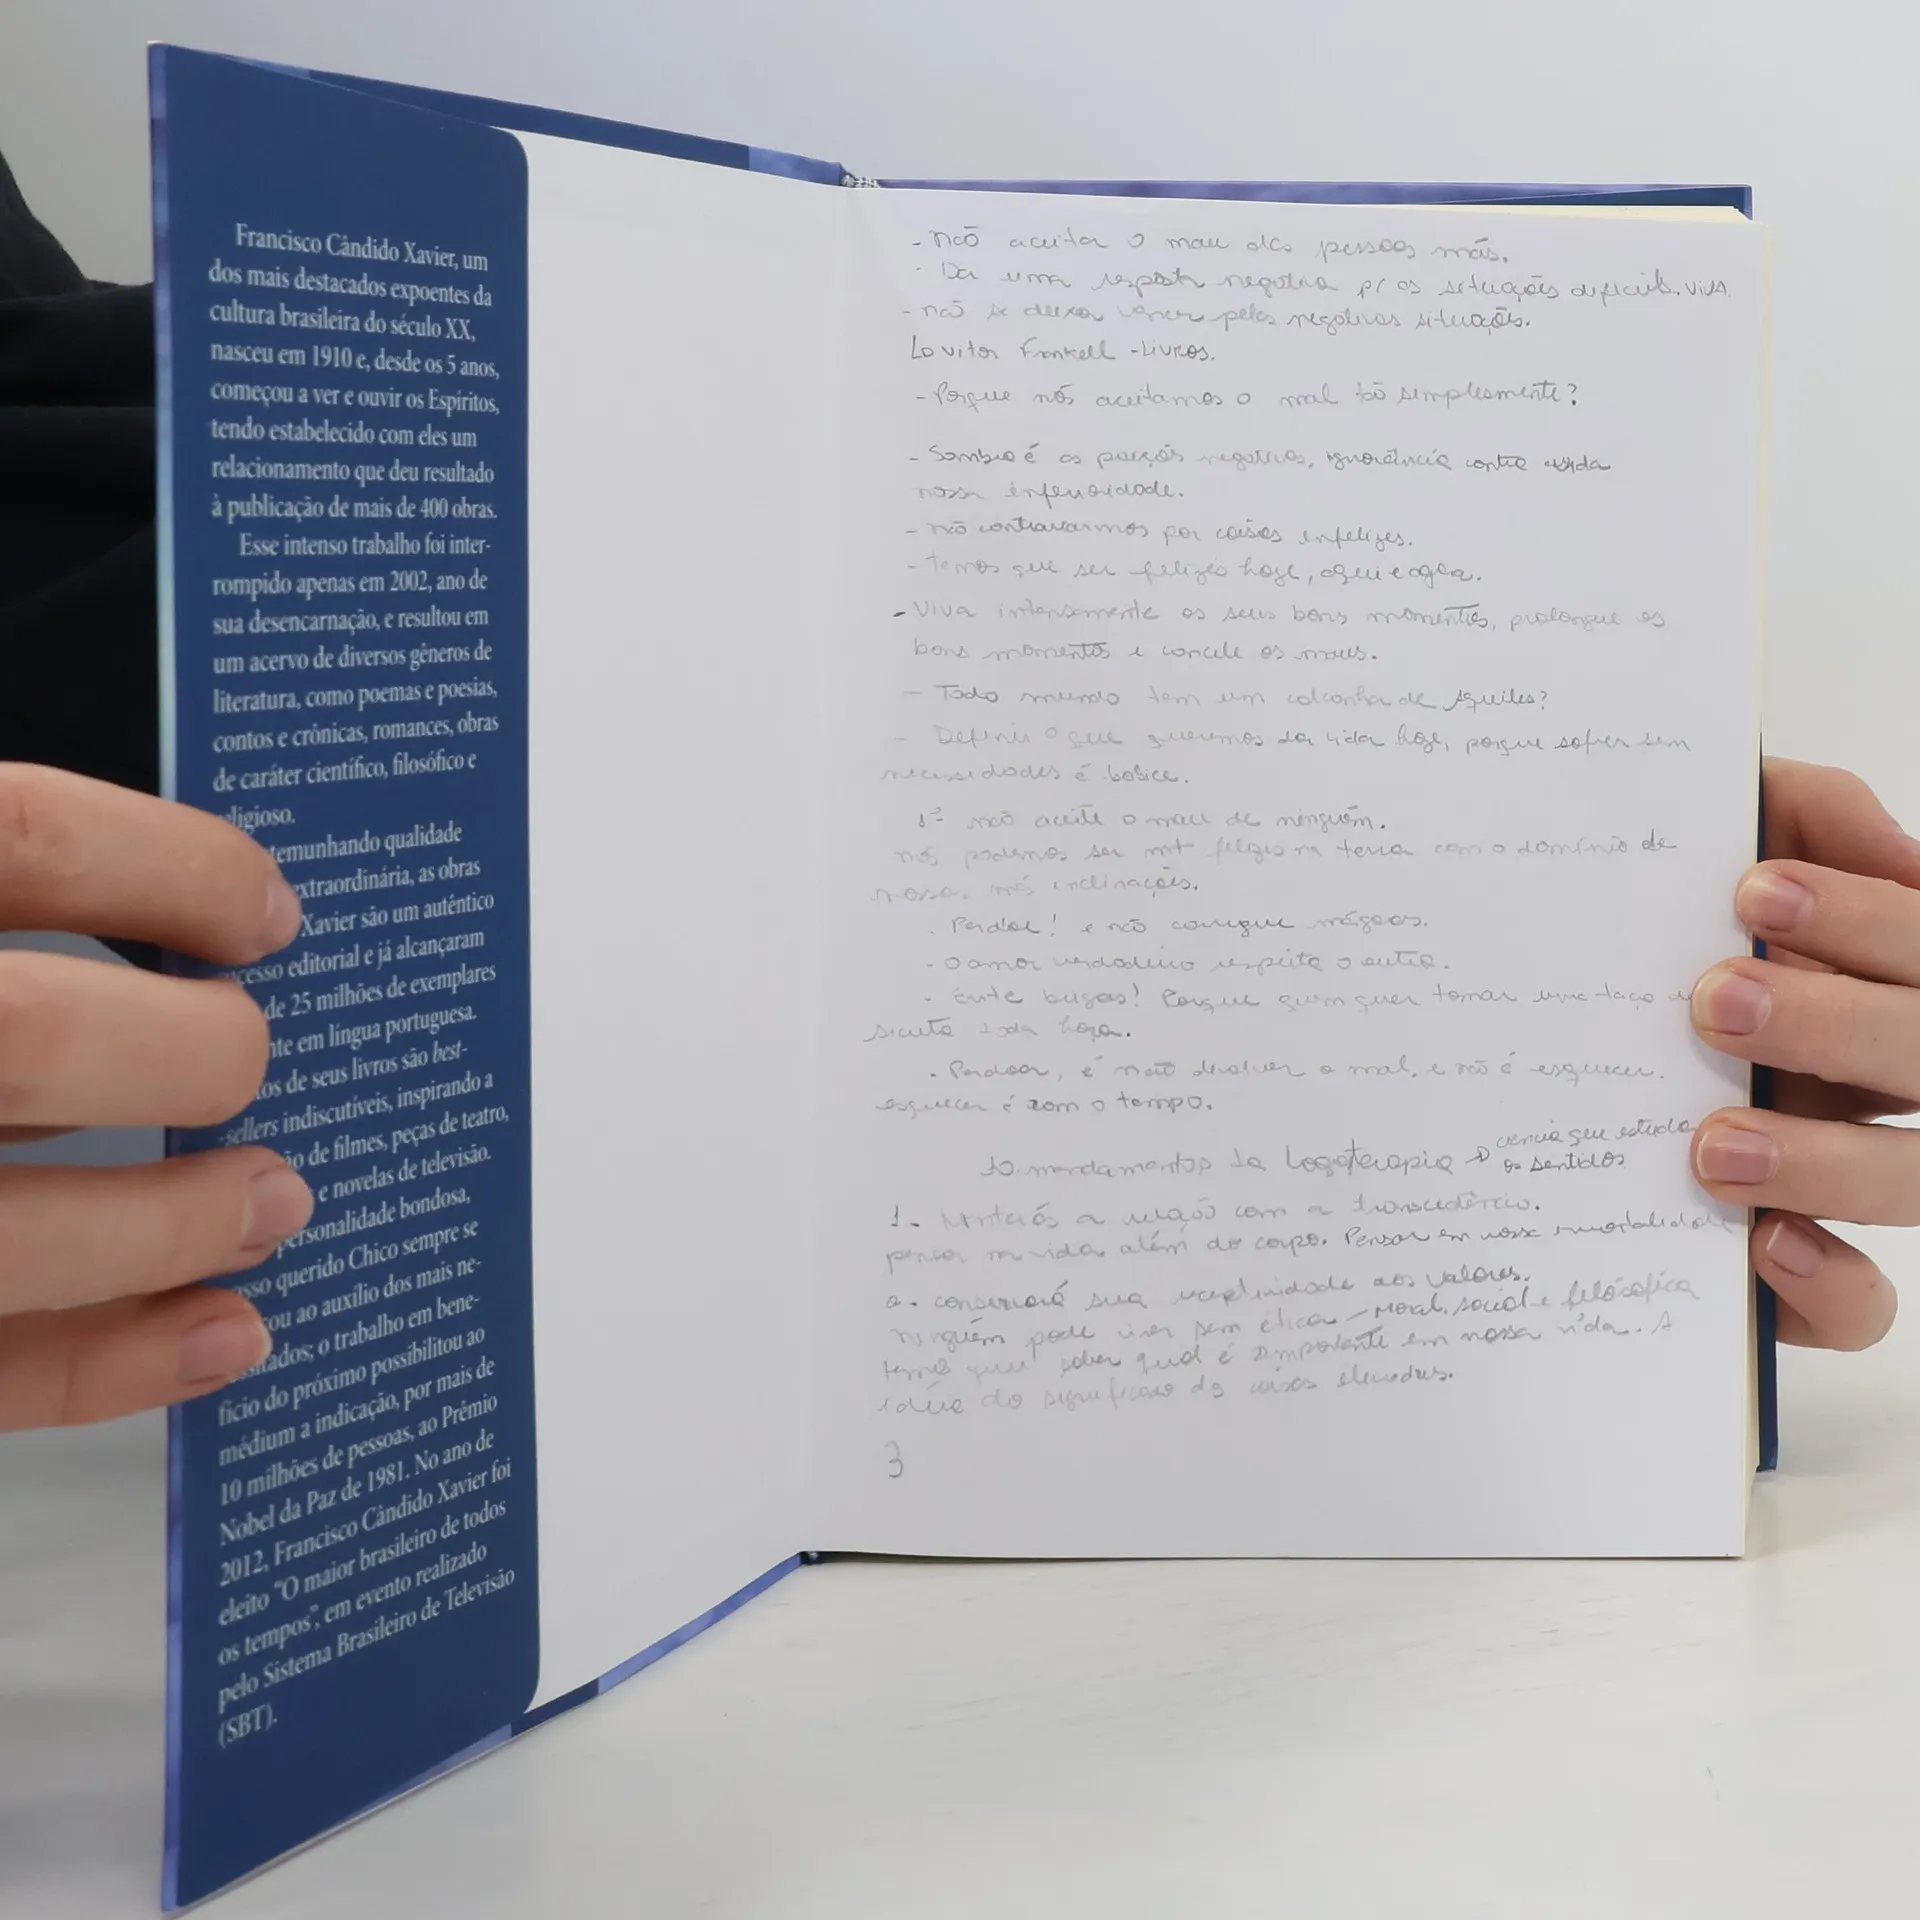 Francisco Cândido Xavier, um
dos mais destacados expoentes da
cultura brasileira do século XX,
nasceu em 1910 e, desde os 5 anos,
começou a ver e ouvir os Espíritos,
tendo estabelecido com eles um
relacionamento que deu resultado
à publicação de mais de 400 obras.
Esse intenso trabalho foi inter-
rompido apenas em 2002, ano de
sua desencarnação, e resultou em
um acervo de diversos gêneros de
literatura, como poemas e poesias,
contos e crônicas, romances, obras
de caráter científico, filosófico e
ligioso.
temunhando qualidade
xtraordinária, as obras
Xavier são um autêntico
cesso editorial e já alcançaram
de 25 milhões de exemplares
nte em língua portuguesa.
tos de seus livros são best-
-sellers indiscutíveis, inspirando a
ão de filmes, peças de teatro,
e novelas de televisão.
personalidade bondosa,
sso querido Chico sempre se
ou ao auxílio dos mais ne-
sitados; o trabalho em bene-
fício do próximo possibilitou ao
médium a indicação, por mais de
10 milhões de pessoas, ao Prêmio
Nobel da Paz de 1981. No ano de
2012, Francisco Cândido Xavier foi
eleito "O maior brasileiro de todos
os tempos", em evento realizado
pelo Sistema Brasileiro de Televisão
(SBT).
- não aceitar o mau das pessoas más.
- Da uma resposta negativa p/ as situações difíceis. Viva.
- não se deixar vencer pelas negativas situações.
Vitor Frankell - Livros.
- Porque nós aceitamos o mal tão simplesmente?
- Sombra é as porções negativas, ignorância contra a vida
nossa inferioridade.
- não por coisas infelizes.
- temos que ser felizes hoje, aqui e agora.
- Viva intensamente os seus bons momentos, prolongue os
bons momentos e cancele os maus.
- Todo mundo tem um calcanhar de Aquiles?
- Definir o que queremos da vida hoje, porque sofrer sem
necessidades é
1º não aceite o mau de ninguém.
nós podemos ser mt felizes na terra com o domínio de
nossas más inclinações.
. Perdoe! e não carregue mágoas.
. O amor verdadeiro respeita o outro.
. Evite brigas! Porque quem quer tomar uma taça de
sicuta toda hora.
. Perdoar, é não devolver o mal, e não é esquecer.
esquecer é com o tempo.
10 mandamentos da Logoterapia → ciência que estuda
os sentidos
1. a relação com a transcedência.
pensar na vida além do corpo. Pensar em nossa imortalidade
2. conservará sua receptividade aos valores.
ninguém pode viver sem ética - moral, social e filosófica
temos que saber qual é importante em nossa vida. A
idéia do significado das coisas elevadas.
3